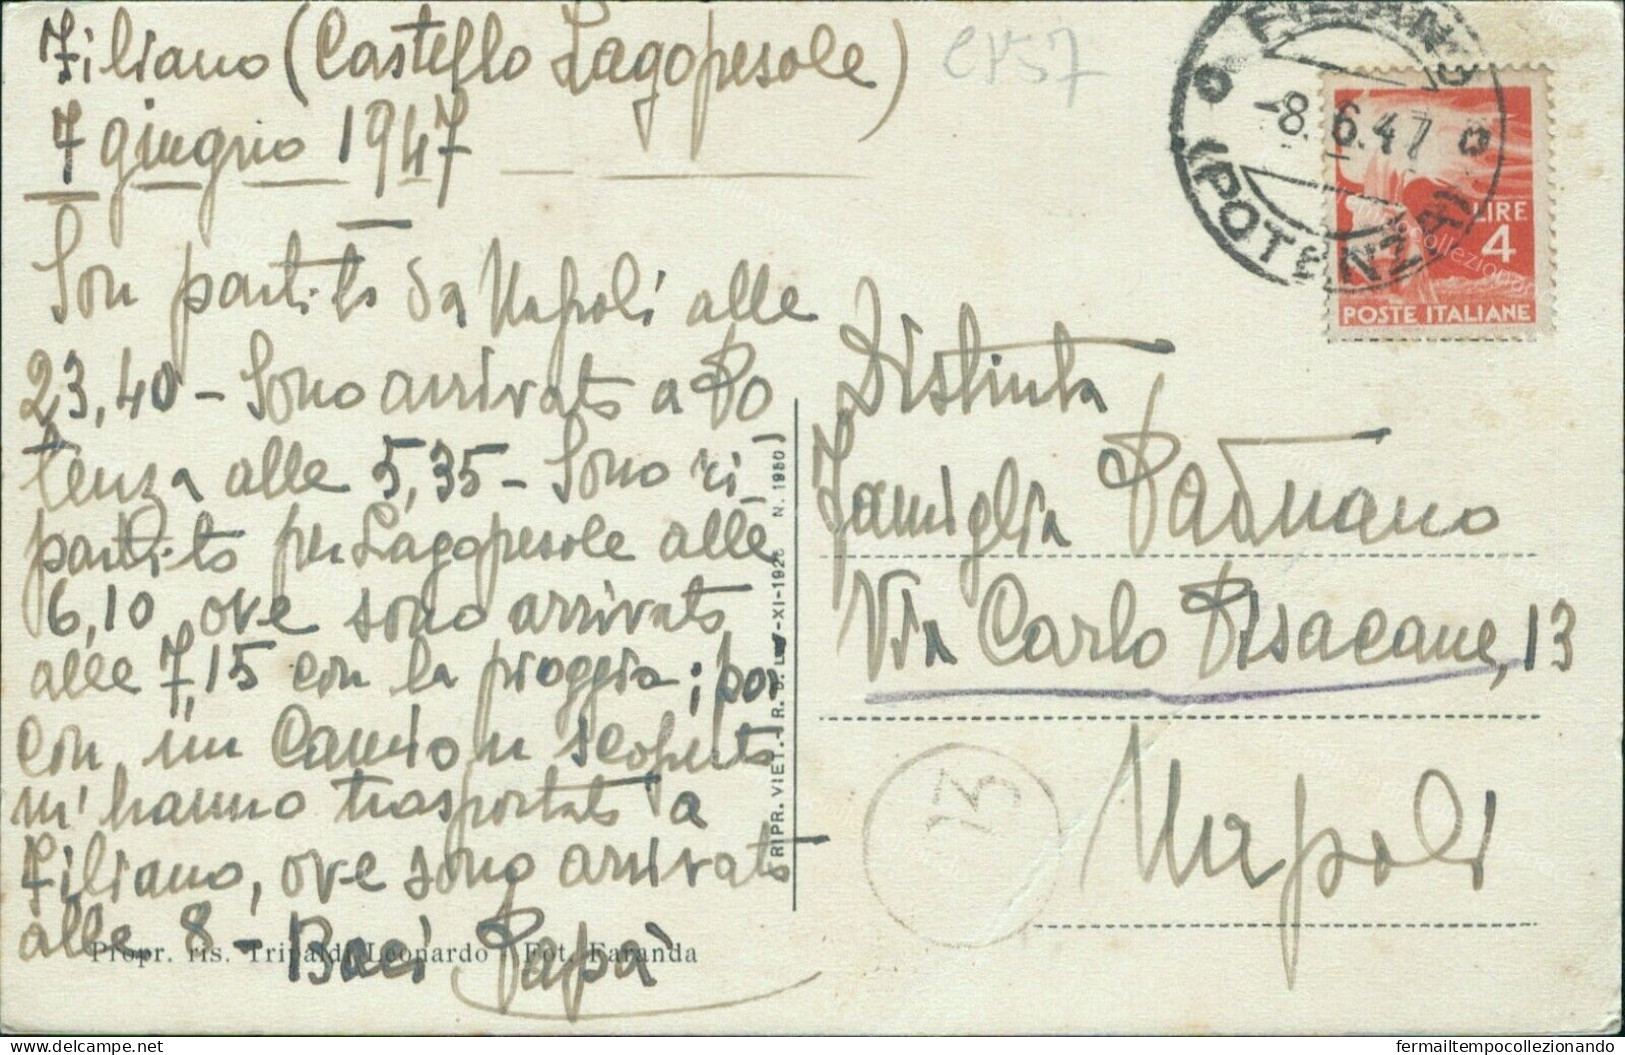 Filiano (Castello Lagopesole)
7 giugno 1947
Son partito da Napoli alle
23,40 - Sono arrivato a Po
tenza alle 5,35 - Sono ri_
partito per Lagopesole alle
6,10 ove sono arrivato
alle 7,15 con la pioggia; poi
con un Camion scoperto
m'hanno trasportato a
Filiano, ove sono arrivato
alle 8 - Baci Papà
Propr. ris. Tripaldi Leonardo - Fot. Faranda
CP57
FILIANO
-8.6.47
(POTENZA)
LIRE
4
POSTE ITALIANE
Distinta
Famiglia Padnano
Via Carlo Pisacane, 13
Napoli
13
fermailtempocollezionando
delcampe.net